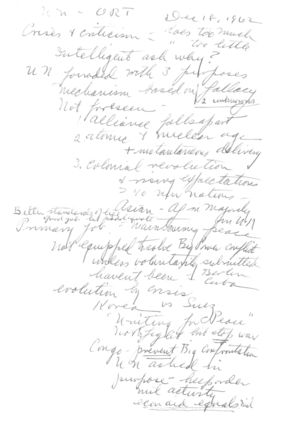 UN - ORT
Dec 18, 1962
Crisis & criticism - does too much
" too little
Intelligent ask why?
UN founded with 3 purposes
Mechanism based on fallacy
Not foreseen -
1 alliance falls apart
2 atomic & nuclear age
+ instantaneous delivery
3. Colonial revolution
& rising expectations
40 new nations -
Asian - Afr majority
Better standards of life
Primary job - maintaining peace
Not equipped to solve Big Power conflict
unless voluntarily submitted
haven't been - Berlin
Cuba
evolution by crisis
Korea vs Suez
"Uniting for Peace"
not fight but stop war
Congo - prevent Big Confrontation
UN asked in
purpose - keep order
mil activity
econ aid